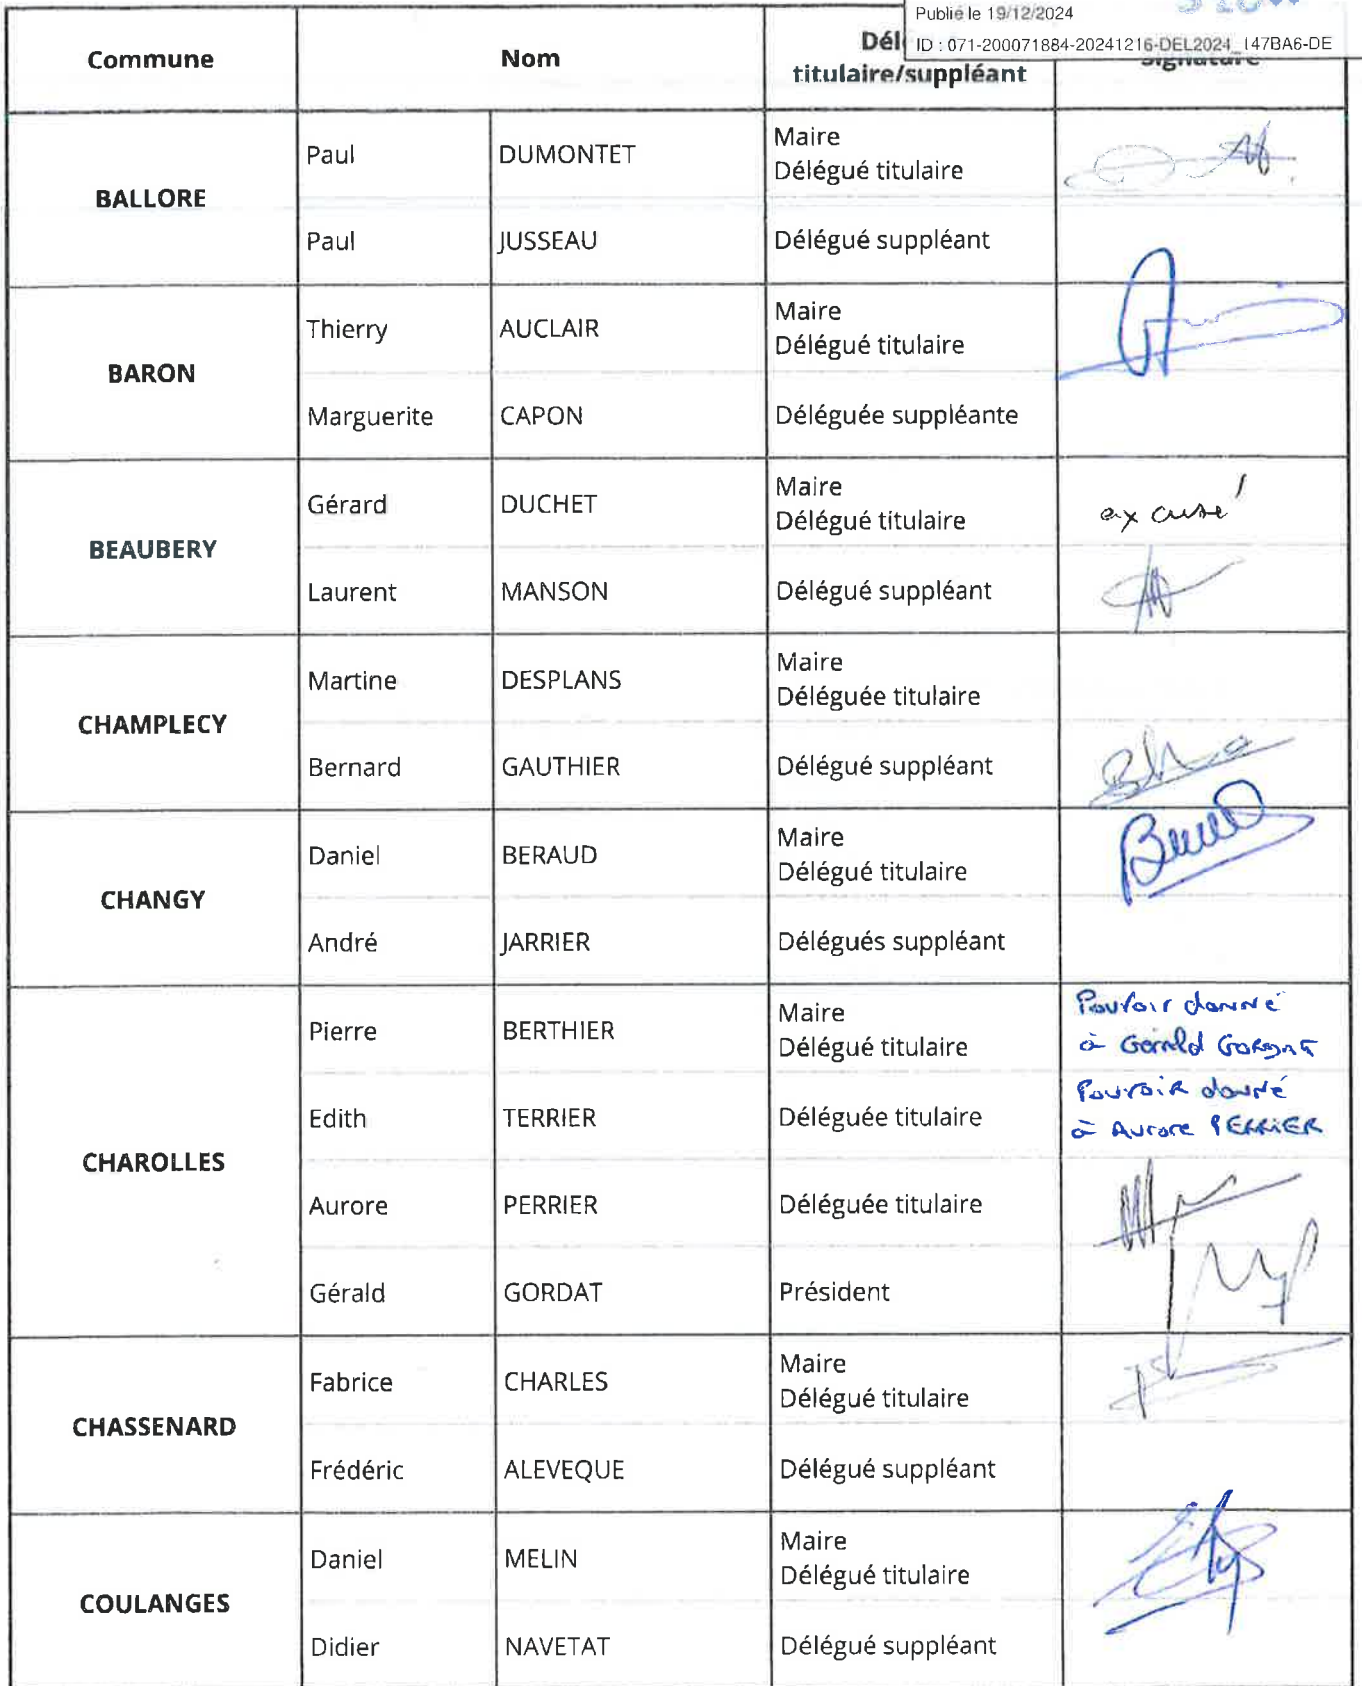 Publié le 19/12/2024
ID : 071-200071884-20241216-DEL2024_147BA6-DE
Commune
Nom
Dél
titulaire/suppléant
Signature
BALLORE
Paul DUMONTET
Maire
Délégué titulaire
Paul JUSSEAU Délégué suppléant
BARON
Thierry AUCLAIR
Maire
Délégué titulaire
Marguerite CAPON Déléguée suppléante
BEAUBERY
Gérard DUCHET
Maire
Délégué titulaire
excusé
Laurent MANSON Délégué suppléant
CHAMPLECY
Martine DESPLANS
Maire
Déléguée titulaire
Bernard GAUTHIER Délégué suppléant
CHANGY
Daniel BERAUD
Maire
Délégué titulaire
André JARRIER Délégués suppléant
CHAROLLES
Pierre BERTHIER
Maire
Délégué titulaire
Pouvoir donné
à Gérald GORDAT
Edith TERRIER Déléguée titulaire
Pouvoir donné
à Aurore PERRIER
Aurore PERRIER Déléguée titulaire
Gérald GORDAT Président
CHASSENARD
Fabrice CHARLES
Maire
Délégué titulaire
Frédéric ALEVEQUE Délégué suppléant
COULANGES
Daniel MELIN
Maire
Délégué titulaire
Didier NAVETAT Délégué suppléant